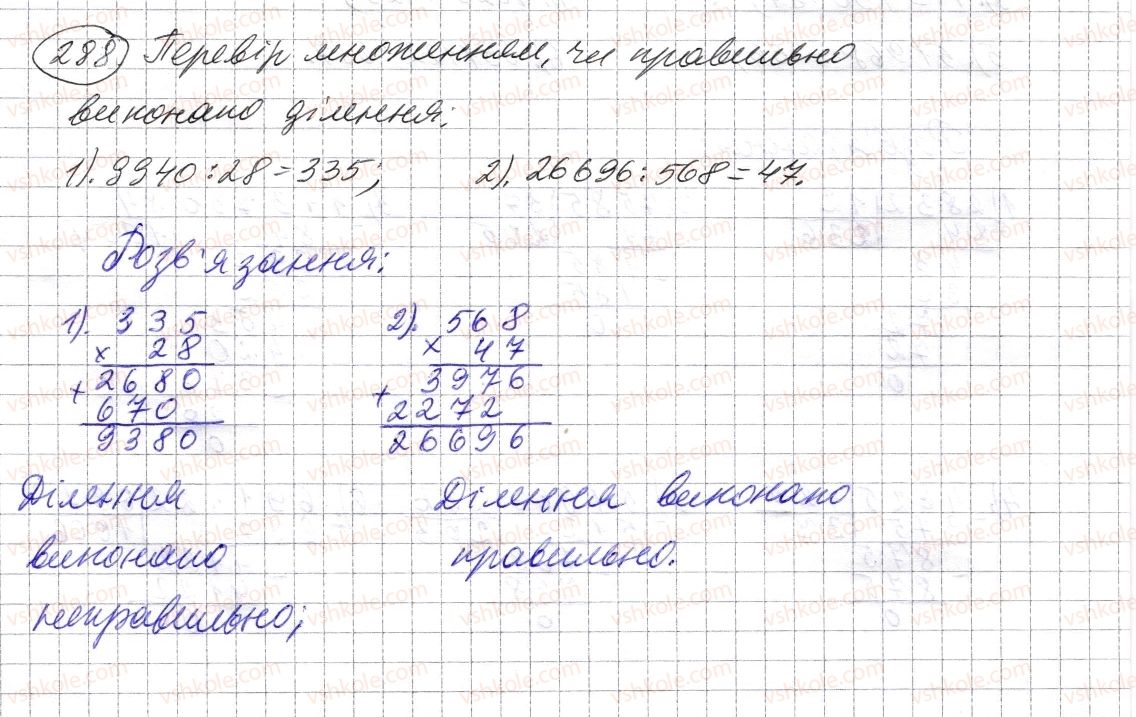 288 Перевір множенням, чи правильно
виконано ділення:
1). 9940 : 28 = 335;
2). 26696 : 568 = 47.
Розв'язання:
1). 335
× 28
+ 2680
670
9380
2). 568
× 47
+ 3976
2272
26696
Ділення
виконано
неправильно;
Ділення виконано
правильно.
vshkole.com